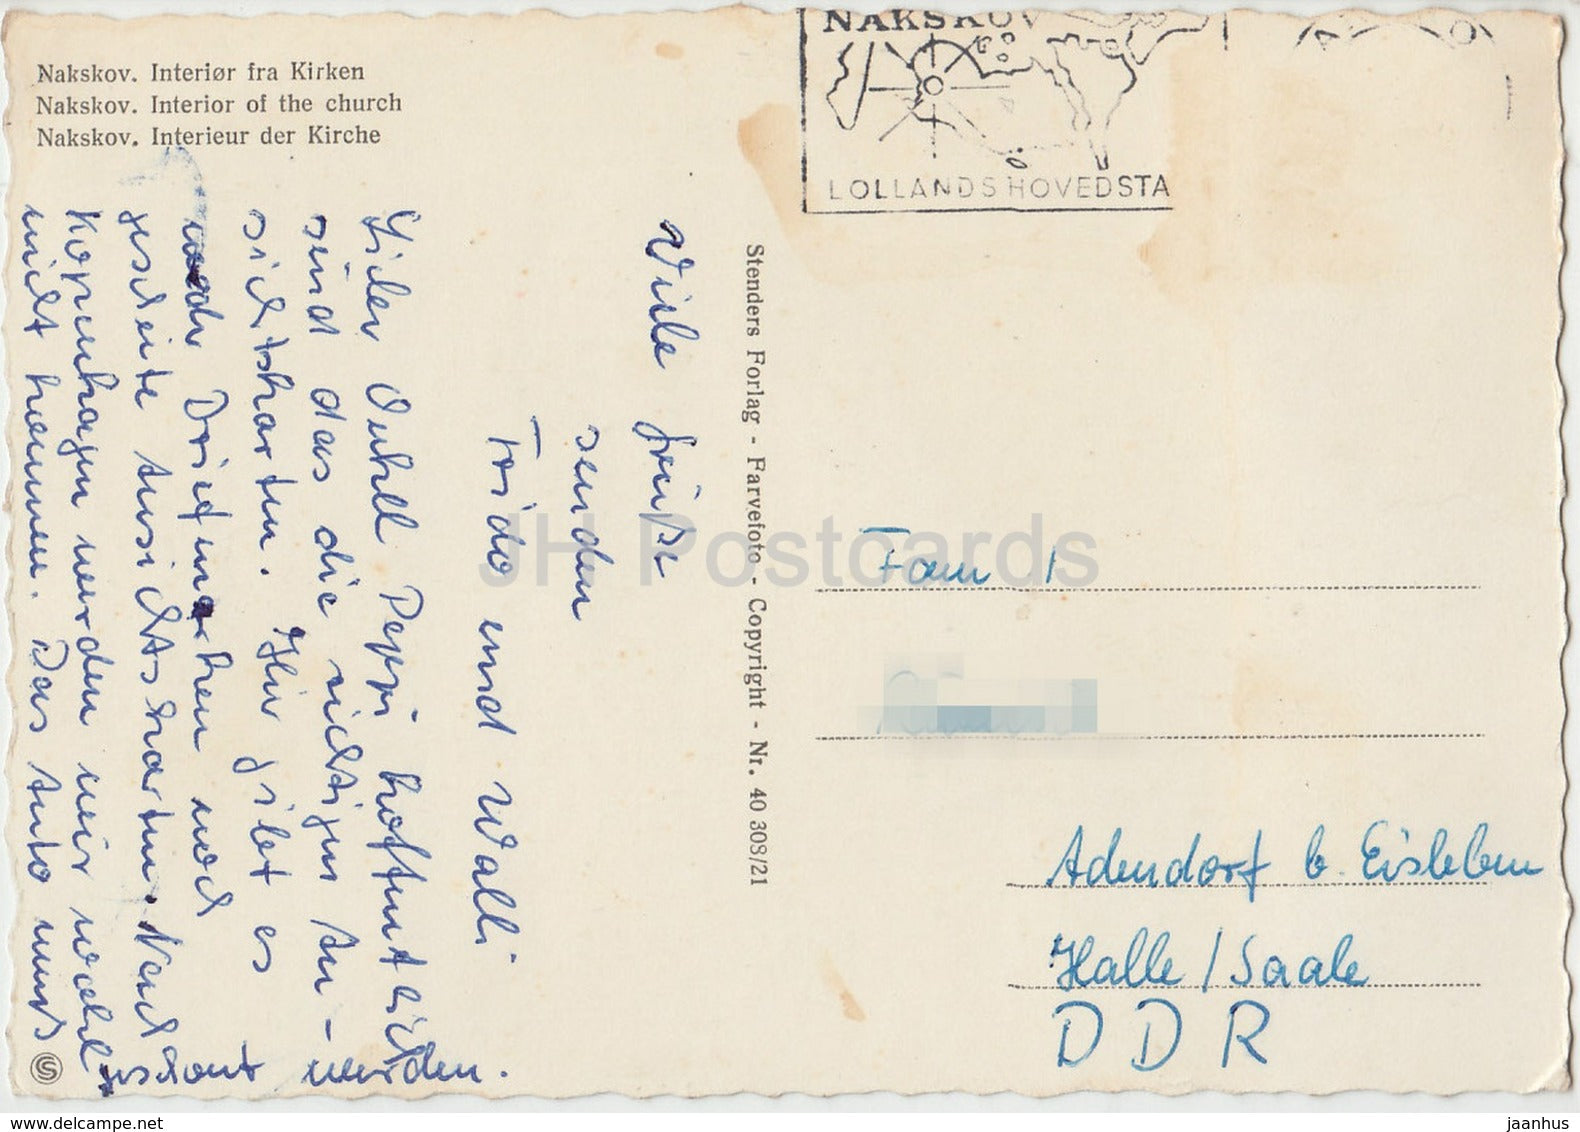 Nakskov. Interiør fra Kirken
Nakskov. Interior of the church
Nakskov. Interieur der Kirche
NAKSKOV
LOLLANDS HOVEDSTA
Viele Grüße
senden
Frido und Walli
Lieber Onkel Peppi hoffentlich
sind das die richtigen An-
sichtskarten. Hier gibt es
Briefmarken und
gescheite Ansichtskarten. Nach
Kopenhagen werden wir wohl
nicht kommen. Das Auto muß
geschont werden.
Stenders Forlag - Farvefoto - Copyright - Nr. 40 308/21
Fam
Adendorf b. Eisleben
Halle / Saale
DDR
JH Postcards
www.delcampe.net
jaanhus